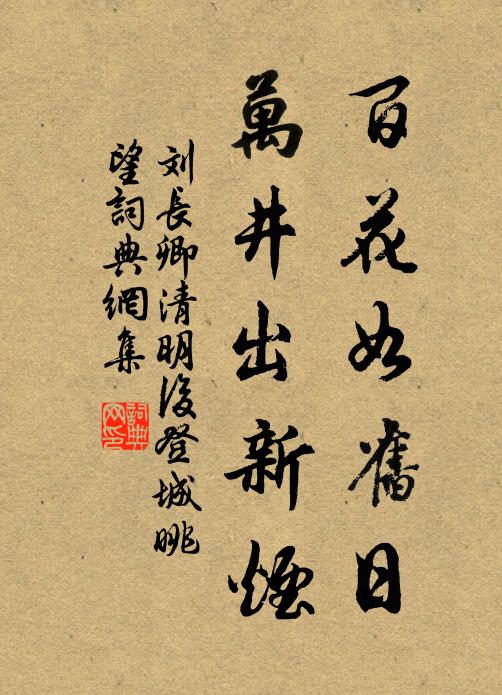 百花如舊日
萬井出新煙
刘長卿清明後登城眺
望詞典網集
詞典
网印